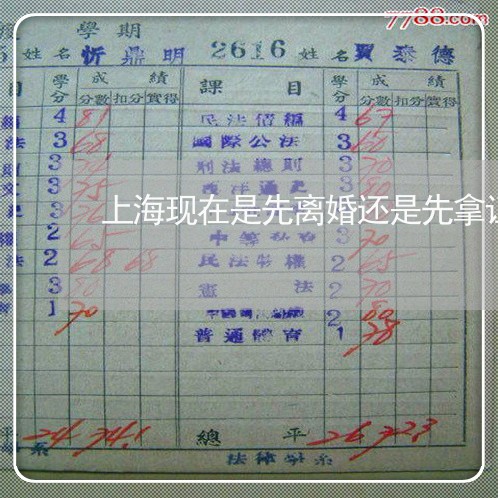 7788.com
學期
姓名 忻鼎明 2616 姓名 賈泰德
目 學分 成績 課目 學分 成績
分數 扣分 實得 分數 扣分 實得
4 81 民法債編 4 67
法 3 68 國際公法 3 60
3 刑法總則 3 70
3 75 西洋通史 3 80
上海现在是先离婚还是先拿证
2 65 3 70
法 2 68 68 民法物權 2 65
3 80 憲法 2 70
1 70 2 80
普通體育 1 78
平 24 74.1 總平 26 72.3
系 法律學系